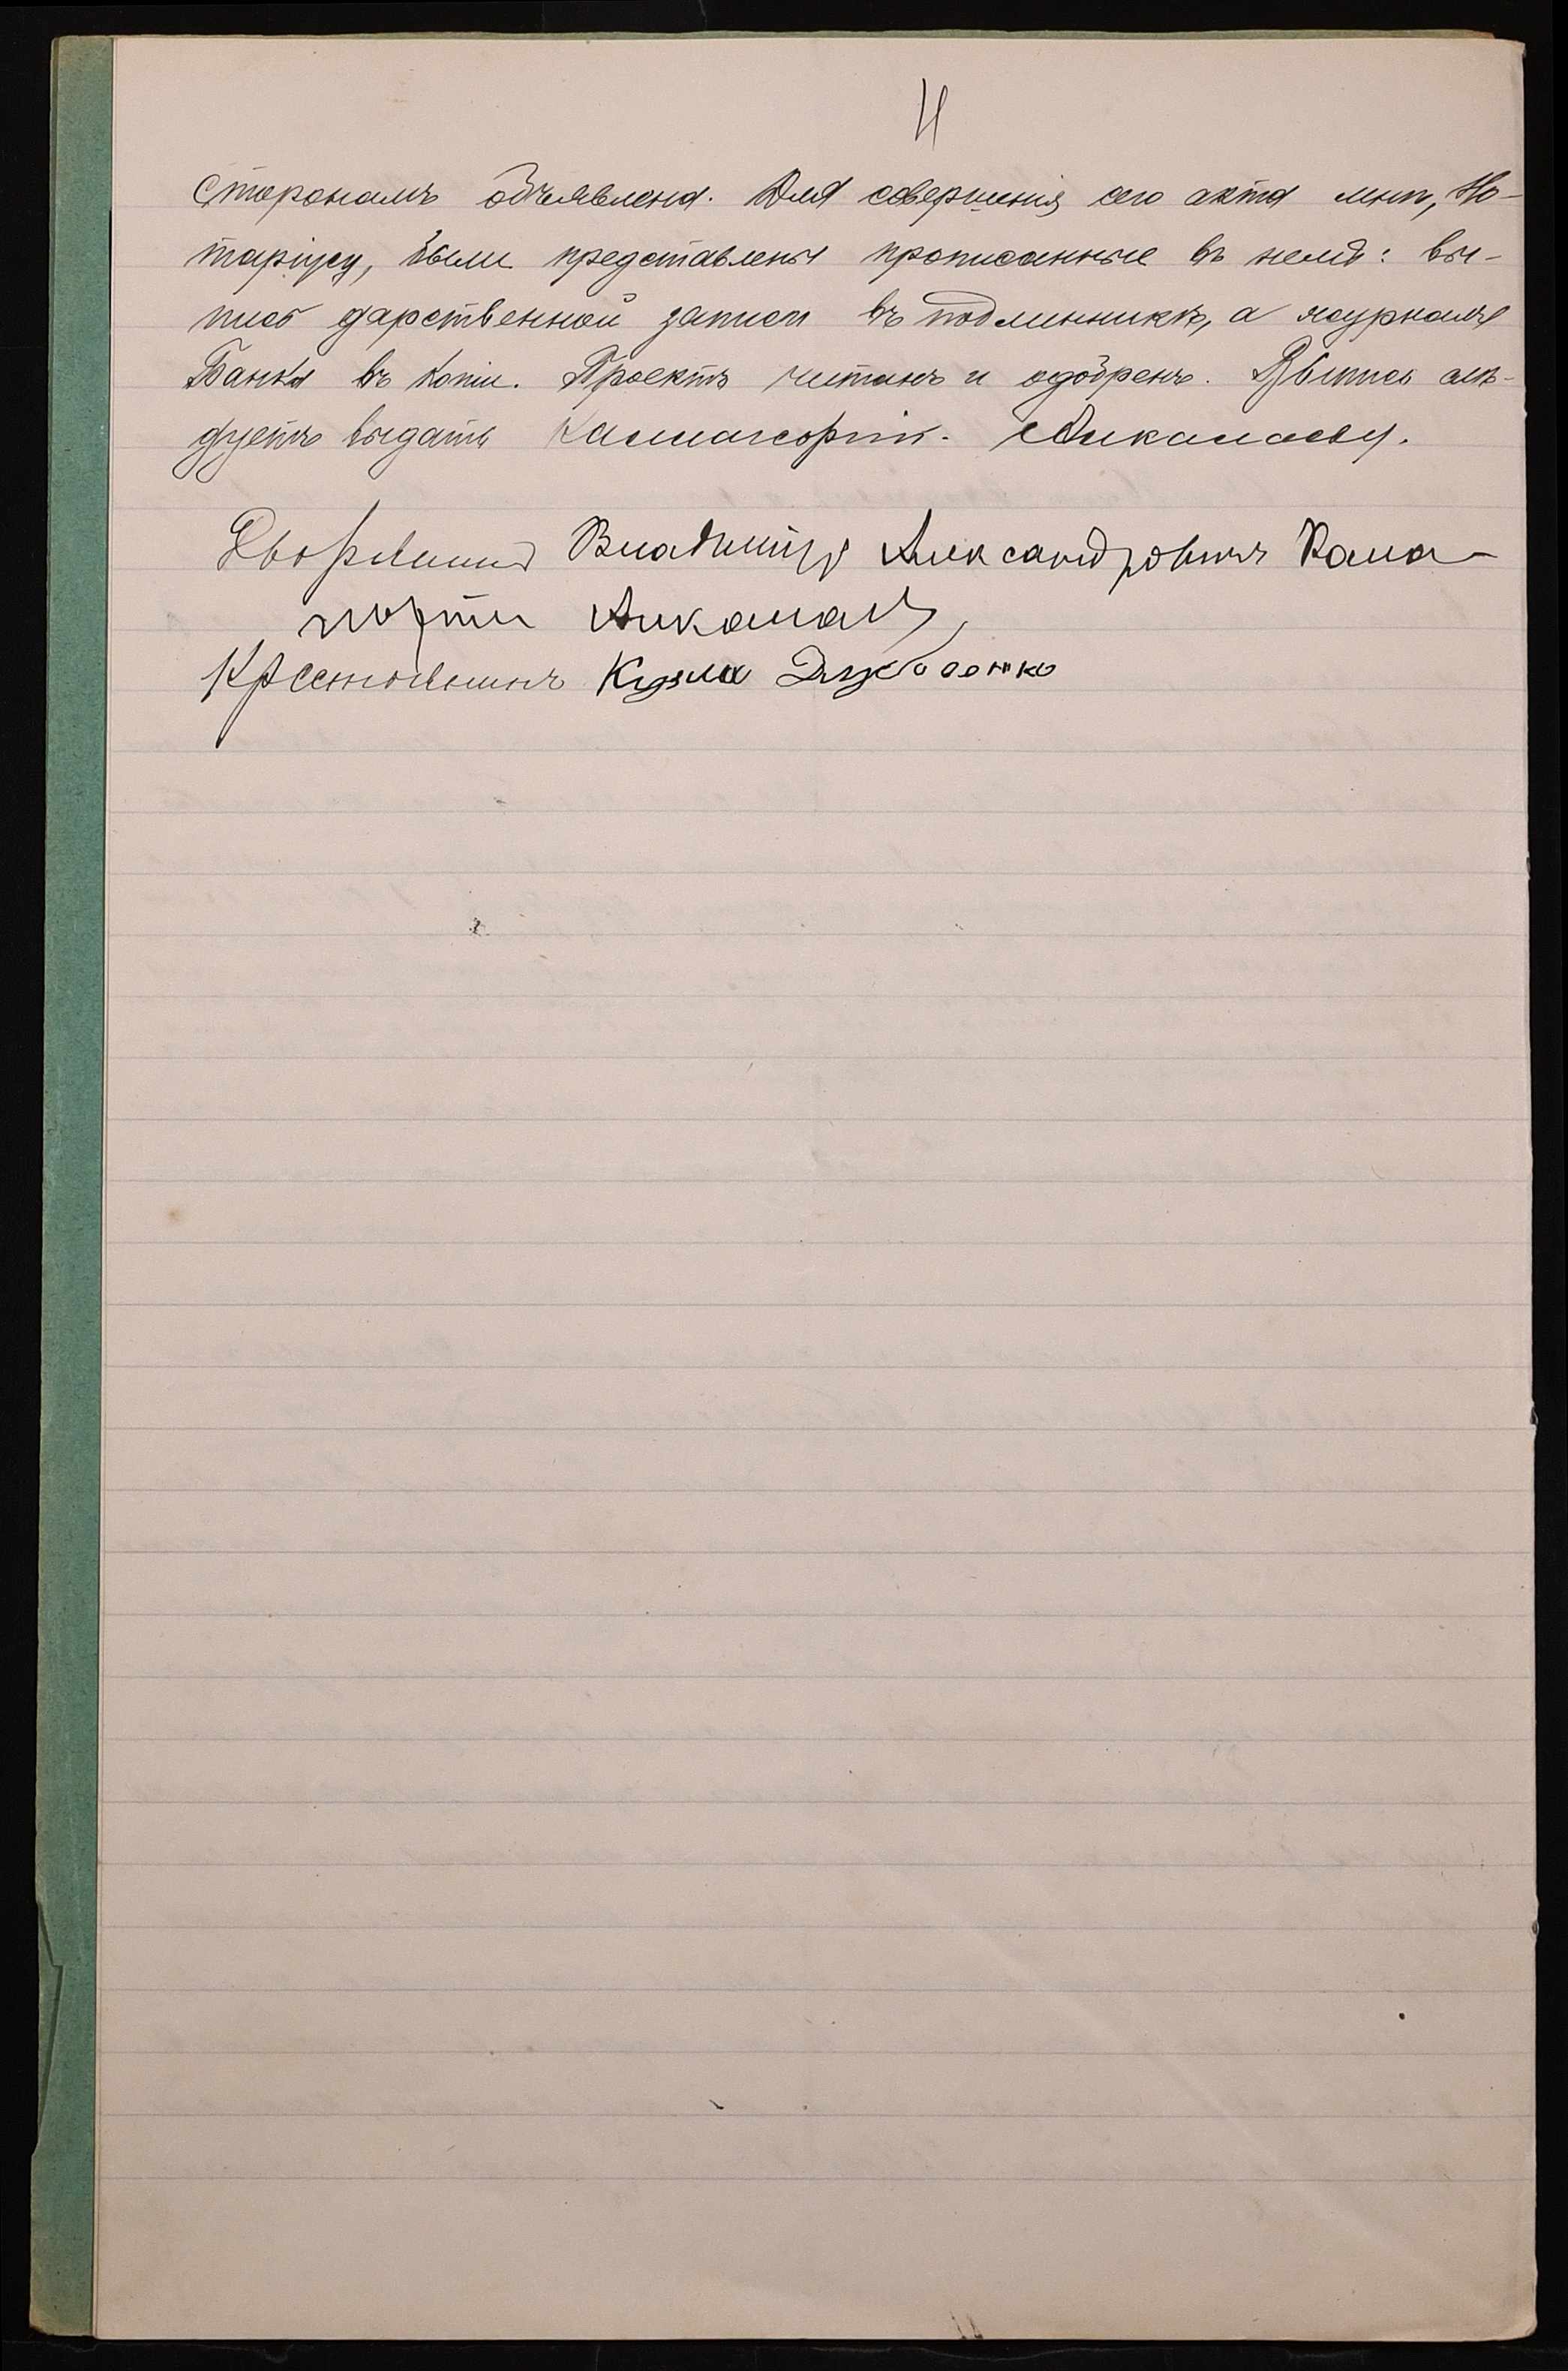 4
Сторонамъ объявлена. Для совершенія сего акта мнѣ, Но-
таріусу, были представлены прописанные въ немъ: вы-
пись дарственной записи въ подлинникѣ, а журналъ
Банка въ копіи. Проектъ читанъ и одобренъ. Выпись слѣ-
дуетъ выдать
Дворянинъ Владиміръ Александровичъ Кама-
Крестьянинъ Кузьма